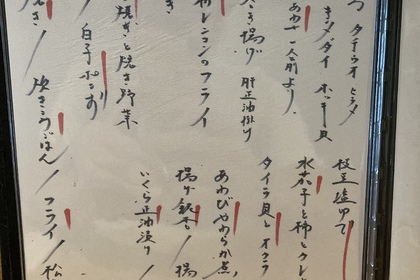 タチウオ ヒラメ
キンメダイ ホッキ貝
あわせ一人前より、
き揚げ 肝正油掛り
レンコンのフライ
焼きと焼き野菜
白子ポン酢
焼き／炊きこみごはん
枝豆塩ゆで
水茄子と柿とクレ
タイラ貝とオクラ
あわびやわらか煮、
揚げ銀杏／揚
いくら正油漬り
フライ／松